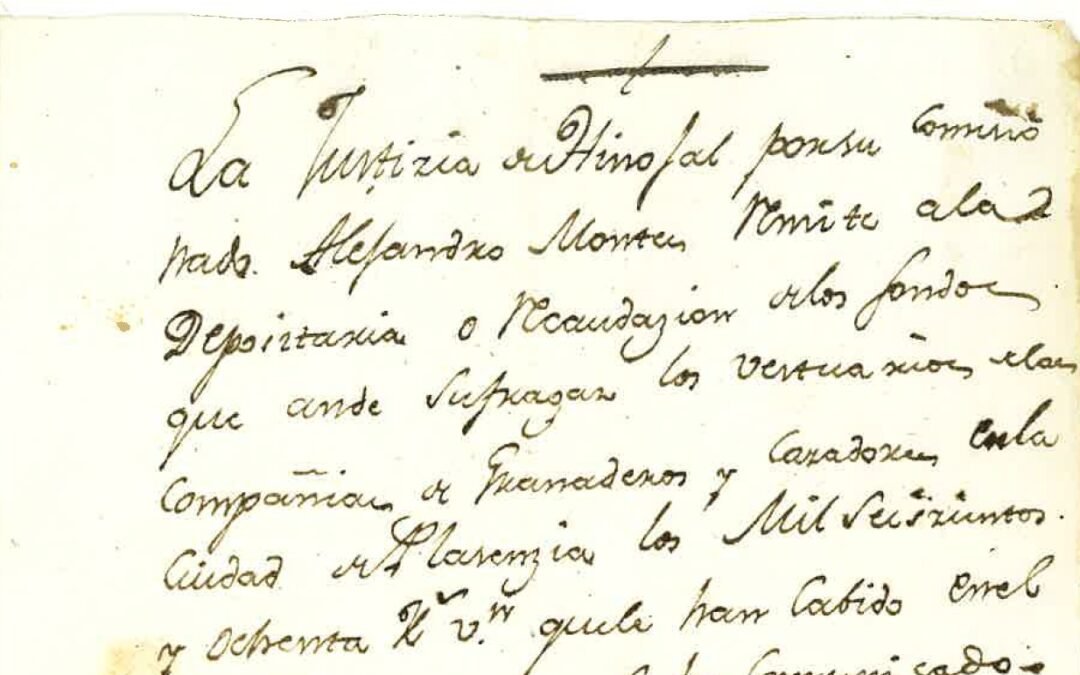 La Justizia de Hinojal por su Comisio
nado. Alejandro Montes Remite a la
Depoistaria o Recaudazion delos fondos
que ande Sufragar los Vestuarios de las
Compañias de Granaderos y Cazadores en la
Ciudad de Plasenzia los Mil Seiszientos.
y Ochenta Rs vn. que le han Cabido en el
comunicado